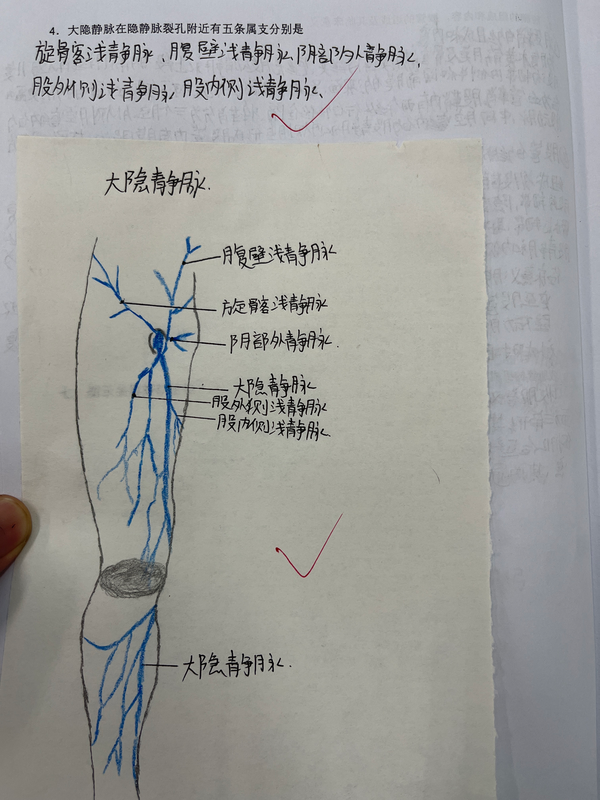 4. 大隐静脉在隐静脉裂孔附近有五条属支分别是
旋骨客浅静脉、腹壁浅静脉、阴部外静脉、
股外侧浅静脉、股内侧浅静脉、
大隐静脉.
腹壁浅静脉
旋骨客浅静脉
阴部外静脉.
大隐静脉
股外侧浅静脉
股内侧浅静脉
大隐静脉.